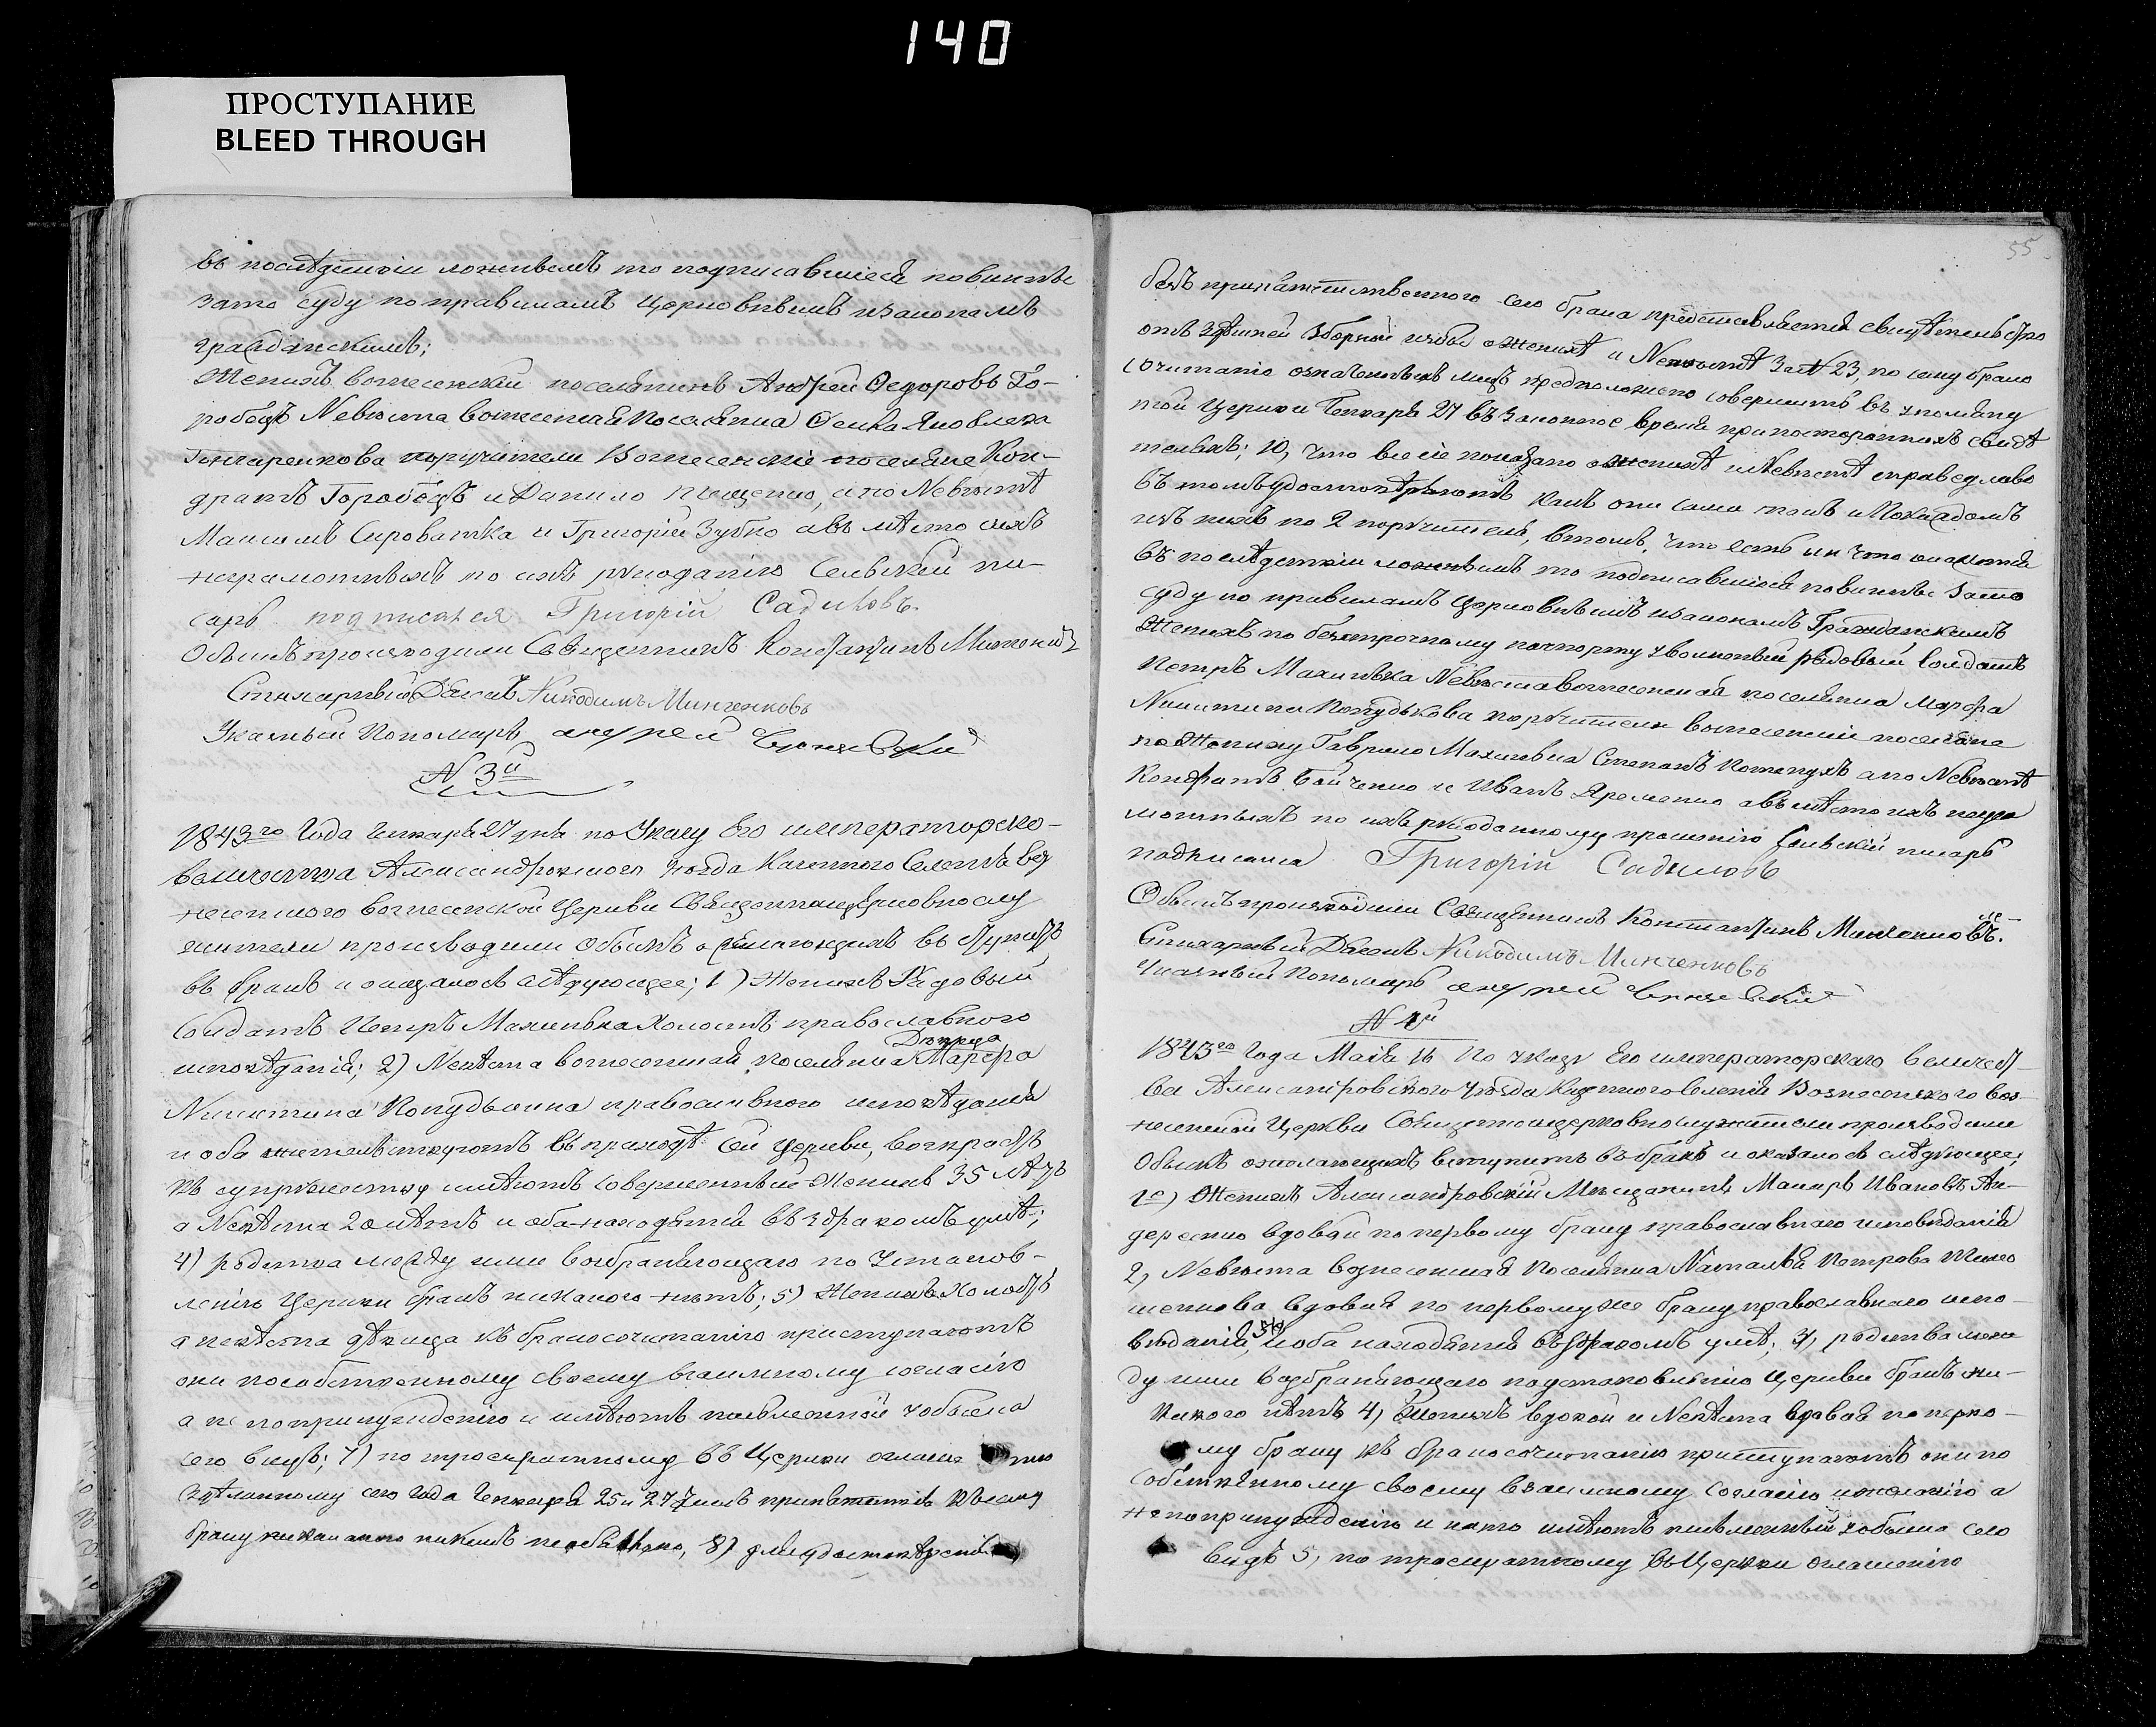 140
ПРОСТУПАНИЕ
BLEED THROUGH
въ последствіи ложнымъ то подписавшіеся повинны
зато суду по правиламъ Церковнымъ изаконамъ
гражданскимъ;
Женихъ вознесенскій поселянинъ Андрей Федоровъ Го-
робецъ Невѣста вознесенская Поселянка Фенка Яковлева
Гончаренкова поручители Вознесенскіе поселяне Кон-
дратъ Горобецъ и Данило Кищенко, а по Невѣстѣ
Максимъ Сироватка и Григорій Зубко а въ мѣсто ихъ
неграмотныхъ по ихъ рукоданію Сельскій пи-
сарь подписался Григорій Садиковъ.
Обыскъ производили Священникъ Константинъ
Стихарный Дьякъ Никодимъ Минченковъ
Указный Пономарь андрей
N 3й
1843го Года Генваря 27 дня по Указу Его императорско-
величества Александровского уѣзда Казенного Селенія воз
несенского вознесенской Церкви Священноцерковнослу
жители производили обыскъ о желающихъ вступить
въ бракъ и оказалось слѣдующее; 1) Женихъ Рядовый
Солдатъ Петръ Махинька Холостъ православного
Дѣвица
исповѣданія; 2) Невѣста вознесенская поселянка Марфа
Никитина Копудькина православного исповѣданія
и оба жительствуютъ въ приходѣ сей Церкви, возрастъ
къ супружеству имѣютъ совершенный Женихъ 35 лѣтъ
а Невѣста 20 лѣтъ и оба находятся въ здравомъ умѣ;
4) родства между ими возбраняющаго по Установ-
ленію Церкви бракъ никакого нѣтъ; 5) Женихъ Холостъ
а невѣста дѣвица къ бракосочитанію приступаютъ
они по собственному своему взаимному согласію
а не по принужденію и имѣютъ письменный у обыска
сего видъ; 7) по троекратному въ Церкви оглаше нію
здѣланному сего Года Генваря 25 и 27 Чиселъ припятствія къ сему
браку никакаго никемъ необявлено, 8) для удостовѣренія
55
безъ припятственного сего брака представляется свидѣтельство
отъ здѣшней зборной избы о Женихѣ и Невѣстѣ За N 23, по сему брако
сочитаніе означенныхъ лицъ предположено совершить въ упомяну
той Церкви Генваря 27 въ Законное время при постороннихъ свидѣ
теляхъ; 10, что все сіе показано о Женихѣ и Невѣстѣ справедливо
въ томъ удостовѣряютъ какъ они сами такъ и По каждомъ
изъ нихъ по 2 поручителя, втомъ, что естьли что окажется
въ последствіи ложнымъ то подписавшіеся повинны Зато
суду по правиламъ Церковнымъ изаконамъ Гражданскимъ
Женихъ по безсрочному паспорту уволенный рядовый Солдатъ
Петръ Махинька Невѣста вознесенская поселянка Марфа
Никитина Копудькова поручители вознесенскіе поселяне
по Жениху Гаврило Махиновка Степанъ Котенухъ а по Невѣстѣ
Кондратъ Бойченко и Иванъ Яременко а въ мѣсто ихъ негра
мотныхъ по ихъ рукоданному прошенію Сельскій писарь
подписался Григорій Садиковъ
Обыскъ производили Священникъ Константинъ
Стихарный Дьякъ Никодимъ Минченковъ
Указный Пономарь андрей
N 4й
1843го Года Маія 16 По указу Его императорскаго величест-
ва Александровского уѣзда Казенного селенія Вознесенского воз-
несенской Церкви Священноцерковнослужители производили
Обыскъ о желающихъ вступить въ бракъ и оказалось слѣдующее;
1е) Женихъ Александровскій Мещанинъ Макаръ Ивановъ Ан-
деренко вдовый по первому браку православнаго исповѣданія
2, Невѣста вознесенская Поселянка Наталья Петрова
шенкова вдовая по первому же браку православнаго испо-
вѣданія, и оба находятся въ здравомъ умѣ; 3, родства меж
ду ими возбраняющаго по установленію Церкви бракъ ни-
какого нѣтъ 4, Женихъ вдовой и Невѣста вдовая по перво-
му браку къ бракосочитанію приступаютъ они по
собственному своему взаимному согласію и желанію а
не по принужденію и на то имѣютъ письменный у обыска сего
видъ 5, по троекратному въ Церкви оглашенію